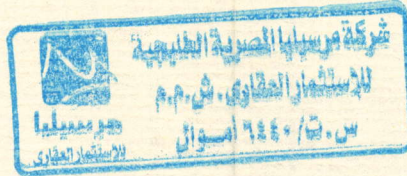 شركة مرسيليا المصرية الخليجية
للإستثمار العقارى . ش.م.م
س.ت/ ٦٤٤٠ أموال
مرسيليا
للإستثمار العقارى